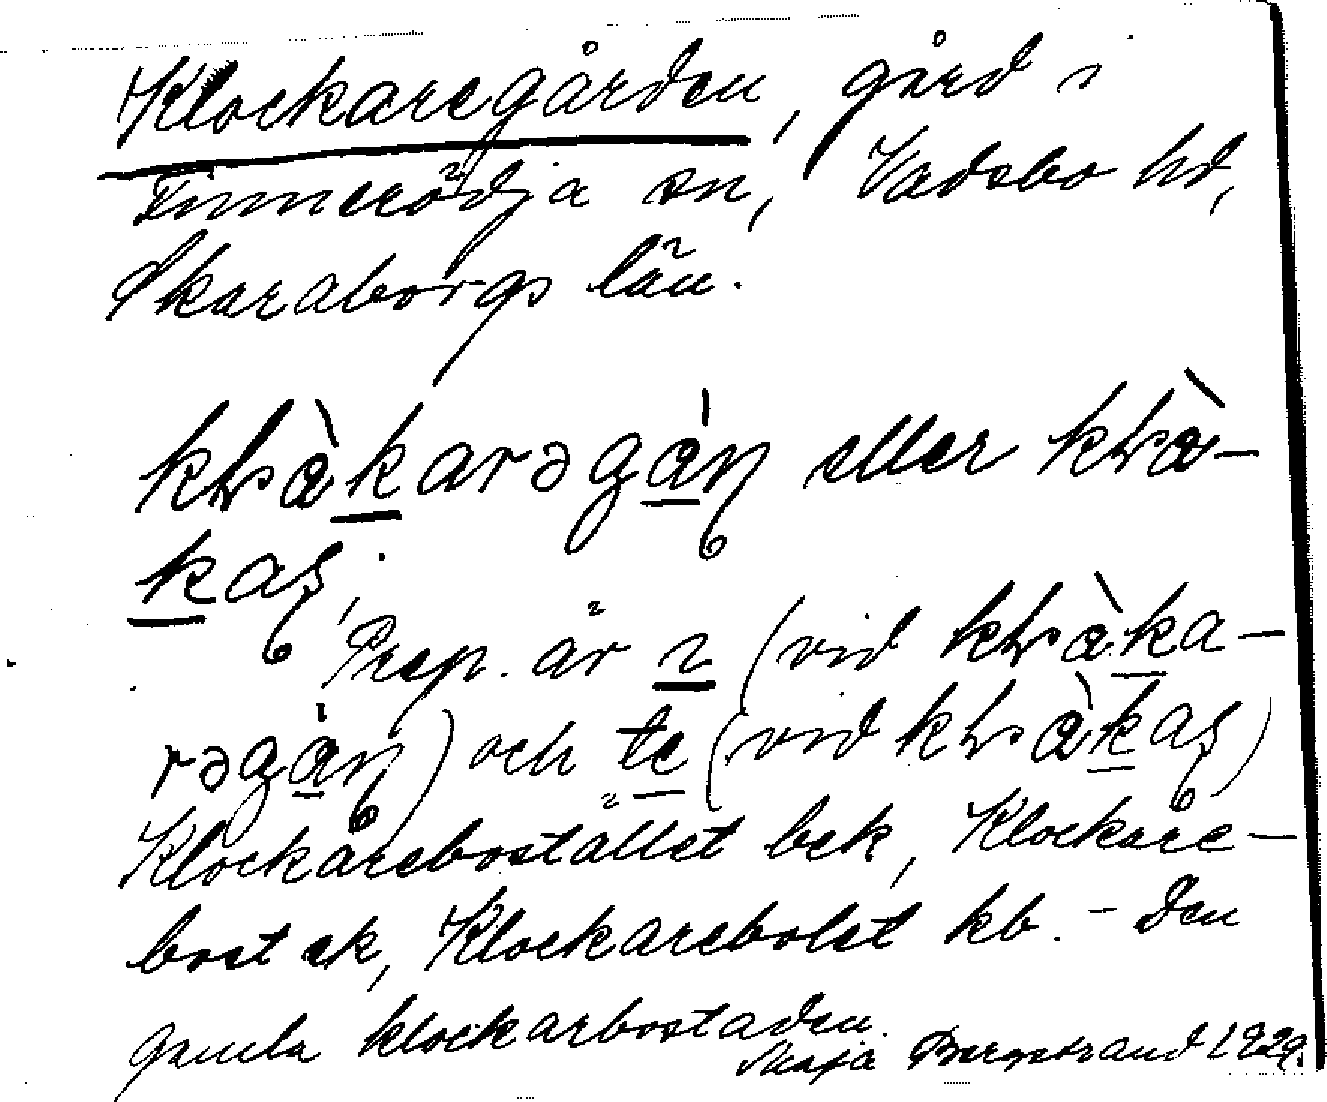 Klockaregården, gård i
Finnerödja sn, Vadsbo hd,
Skaraborgs län.
klɷ̀karəgȧ́ŋ eller klɷ̀-
kaʂ.
Prep. är ı (vid klɷ̀ka-
rəgȧ́ŋ) och te (vid klɷ̀kaʂ)
Klockarebostället bek, Klockare-
bost ek, Klockarebolet kb. - Den
gamla klockarbostaden.
Maja Bergstrand 1929.